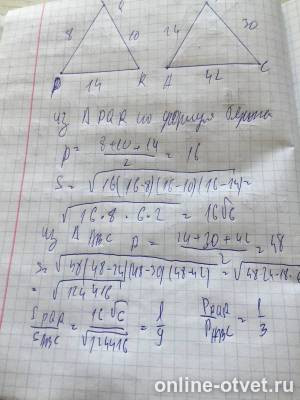 8 10 24 30
P 14 R A 42 C
из Δ PQR по формуле Герона
P = (8+10+14)/2 = 16
S = √(16(16-8)(16-10)(16-14)) =
√(16·8·6·2) = 16√6
из Δ ABC P = (24+30+42)/2 = 48
S = √(48(48-24)(48-30)(48-42)) = √(48·24·18·6
= √124416
S PQR / S ABC = 16√6 / √124416 = 1/9 P PQR / P ABC = 1/3
online-otvet.ru